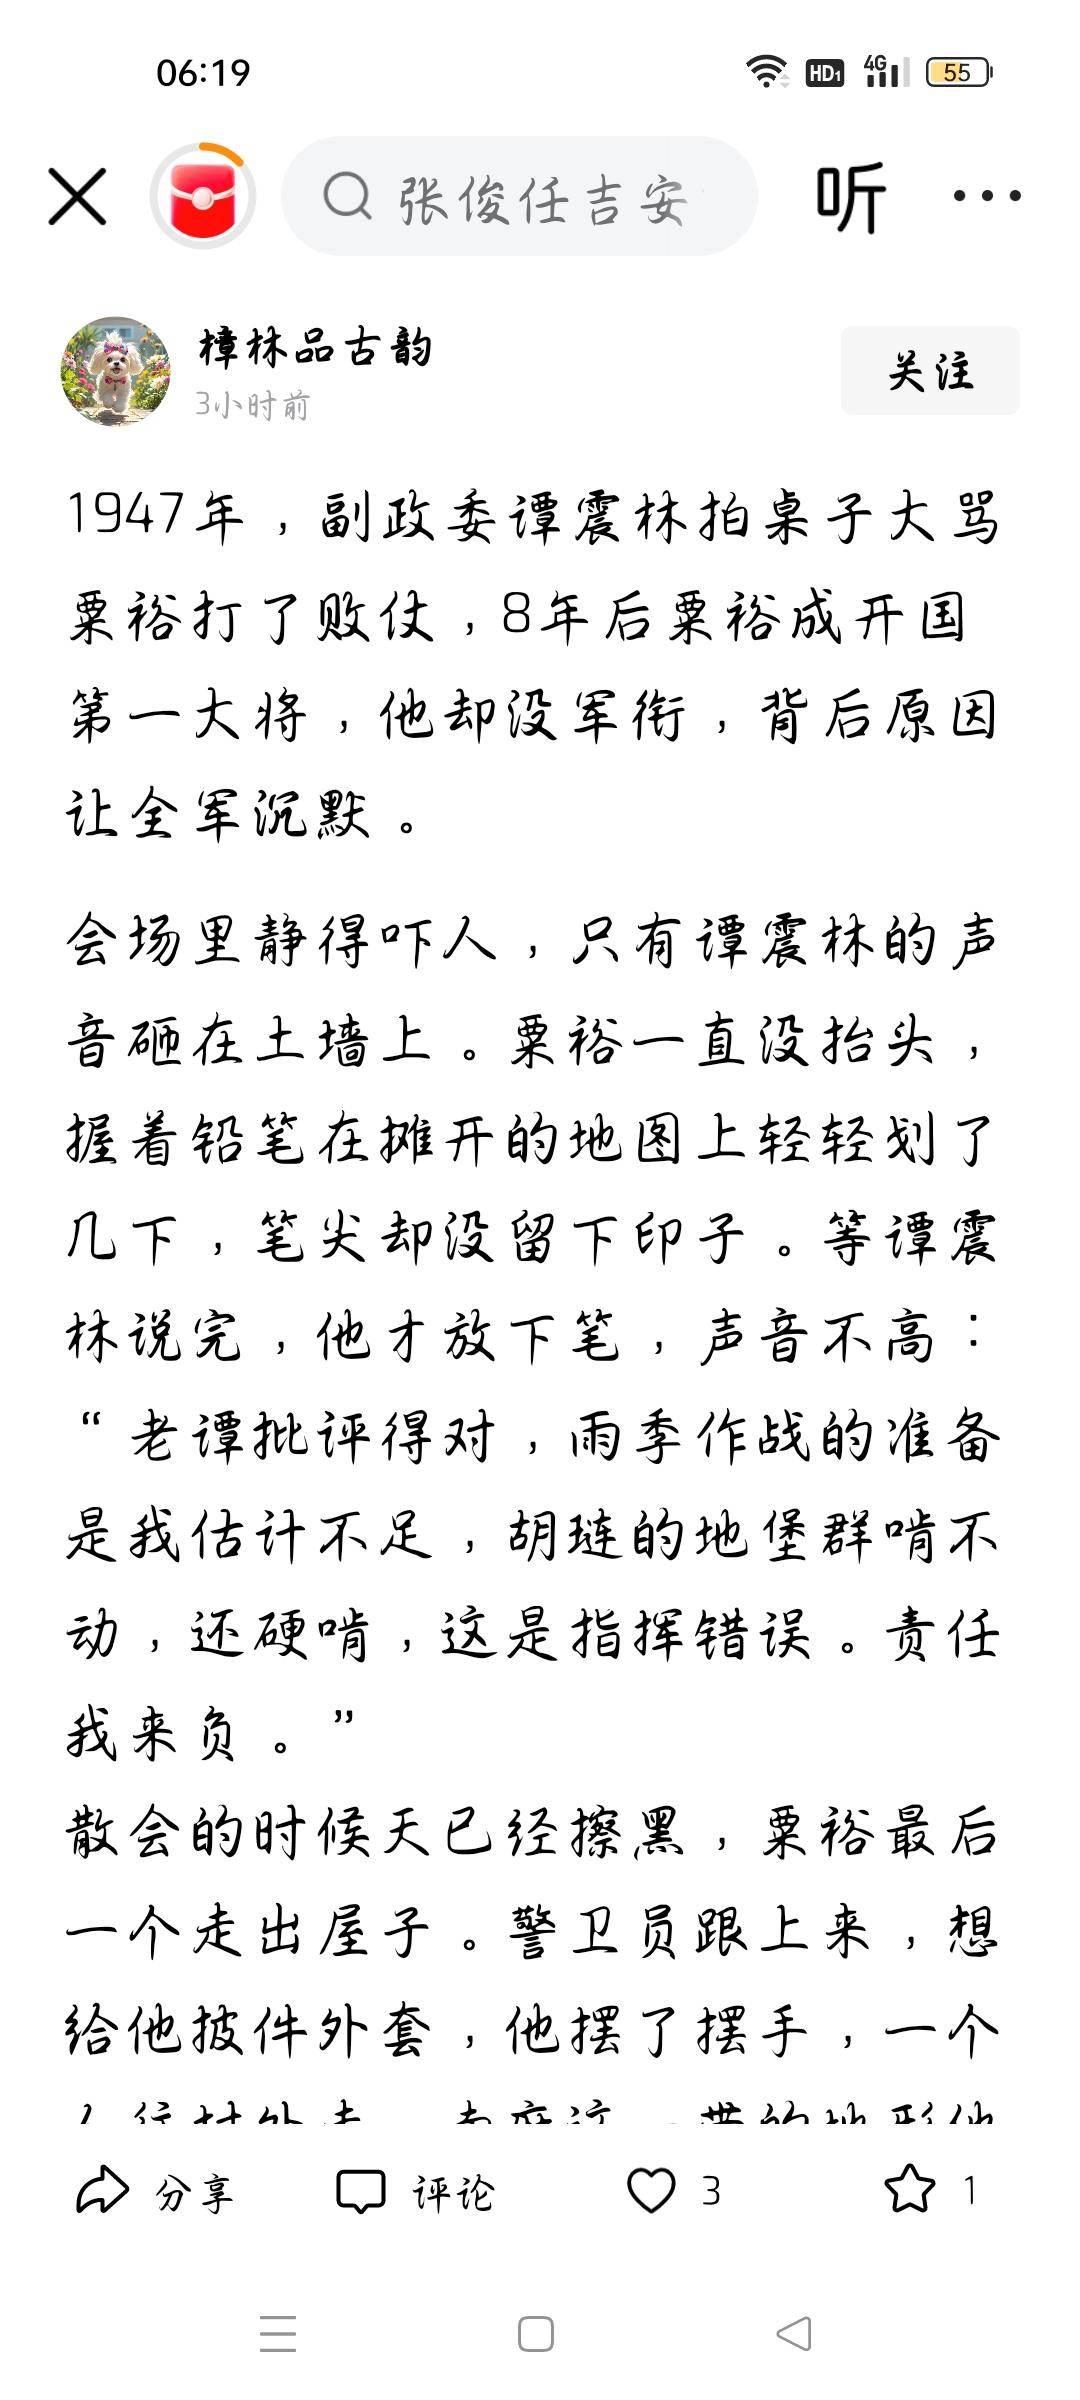 06:19
HD1 4G 55
张俊任吉安
听
樟林品古韵
3小时前
关注
1947年，副政委谭震林拍桌子大骂
粟裕打了败仗，8年后粟裕成开国
第一大将，他却没军衔，背后原因
让全军沉默。
会场里静得吓人，只有谭震林的声
音砸在土墙上。粟裕一直没抬头，
握着铅笔在摊开的地图上轻轻划了
几下，笔尖却没留下印子。等谭震
林说完，他才放下笔，声音不高：
“老谭批评得对，雨季作战的准备
是我估计不足，胡琏的地堡群啃不
动，还硬啃，这是指挥错误。责任
我来负。”
散会的时候天已经擦黑，粟裕最后
一个走出屋子。警卫员跟上来，想
给他披件外套，他摆了摆手，一个
分享
评论
3
1